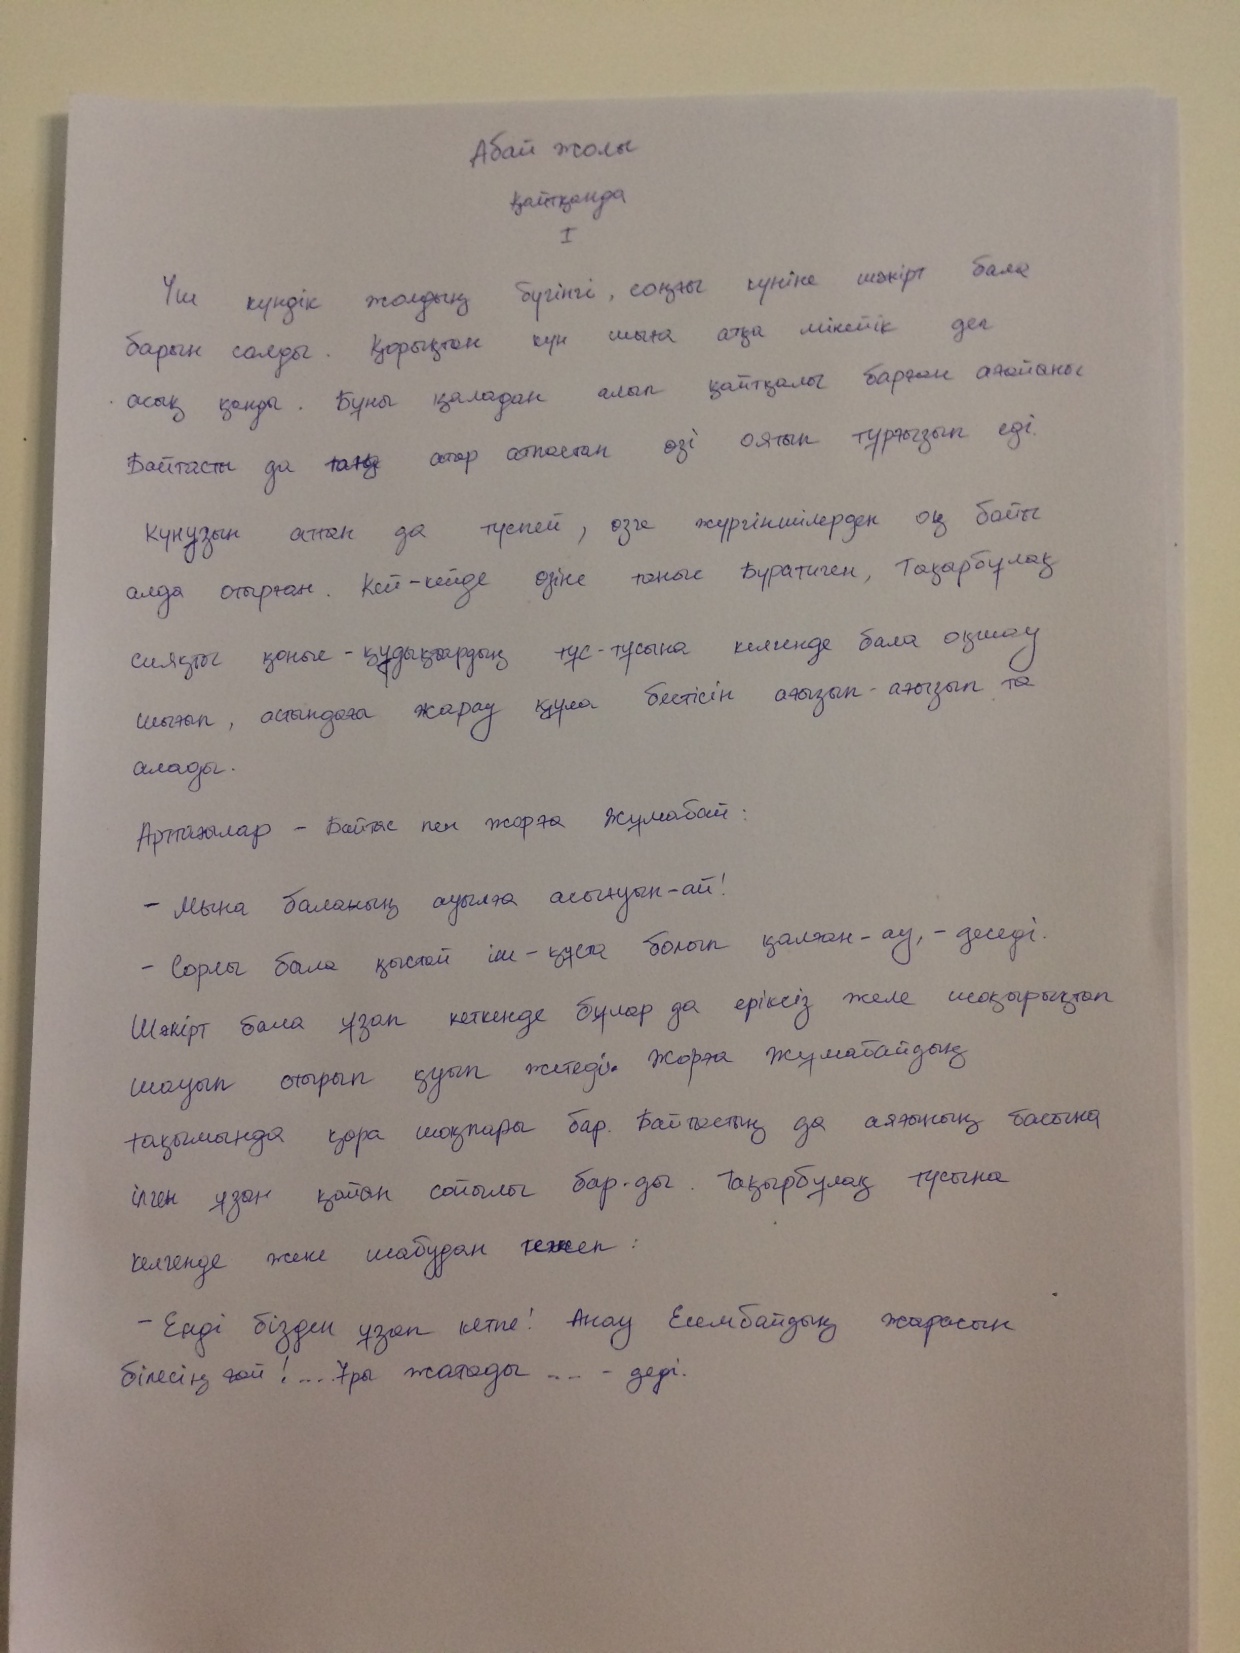 Абай жолы
Қайтқанда
I
Үш күндік жолдың бүгінгі, соңғы күніне шәкірт бала
барын салды. Қорықтан күн шыға атқа мінейік деп
асық қонды. Бұны қаладан алып қайтқалы барған ағайыны
Байтасты да таңд атар атпастан өзі оятып тұрғызып еді.
Күнұзын аттан да түспей, өзге жүргіншілерден оқ бойы
алда отырған. Кей-кейде өзіне таныс Буратиген, Тақырбұлақ
сияқты қоныс-құдықтардың тұс-тұсына келгенде бала оқшау
шығып, астындағы жарау құла бестісін ағызып-ағызып та
алады.
Арттағылар - Байтас пен жорға Жұмабай:
- Мына баланың ауылға асығуын-ай!
- Сорлы бала қыстай іш-құста болып қалған-ау, - деседі.
Шәкірт бала ұзап кеткенде бұлар да еріксіз желе шоқырықтап
шауып отырып қуып жетеді. Жорға Жұмабайдың
тақымында қара шоқпары бар. Байтастың да аяғының басына
ілген ұзын қайың сойылы бар-ды. Тақырбұлақ тұсына
келгенде жеке шабудан тежеп:
- Енді бізден ұзап кетпе! Анау Есембайдың жырасын
білесің ғой!... Ұры жатады .... - деді.